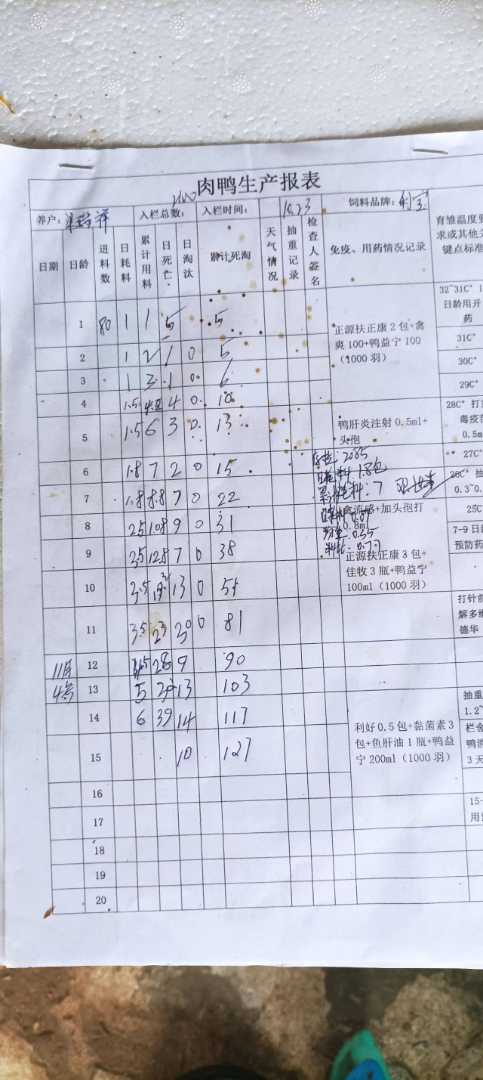 肉鸭生产报表
养户： 入栏总数： 入栏时间： 10.23 饲料品牌：
日期 日龄 进料数 日耗料 累计用料 日死亡 日淘汰 累计死淘 天气情况 抽重记录 检查人签名 免疫、用药情况记录 育雏温度
求或其他
键点标准
32~31C° 1
日龄用开
药
1 80 1 1 5 5
正源扶正康 2 包+禽
爽 100+鸭益宁 100
（1000 羽）
31C°
2 1 2 1 0 5
30C°
3 1 3 1 0 6
29C°
4 1.5 4 0 10
28C° 打
毒疫苗
0.5m
5 1.5 6 3 0 13
鸭肝炎注射 0.5ml+
头孢
27C°
6 1.8 7 2 0 15
2085
1.8包
26C° 抽
0.3~0.
7 1.8 8.8 7 0 22
料：7
25C°
8 2.5 10.8 9 0 31
禽流感+加头孢打
0.8ml
7-9 日
预防药
9 2.5 12.8 7 0 38
正源扶正康 3 包+
佳牧 3 瓶+鸭益宁
100ml（1000 羽）
10 3.5 13 0 51
打针前
解多维
德华
11 3.5 23 30 0 81
11月 12 28 9 90
4号 13 5 13 103
14 6 39 14 117
利好 0.5 包+黏菌素 3
包+鱼肝油 1 瓶+鸭益
宁 200ml（1000 羽）
抽重
1.2~
栏舍
鸭浏
3 天
15 10 127
16
17
15-
用
18
19
20